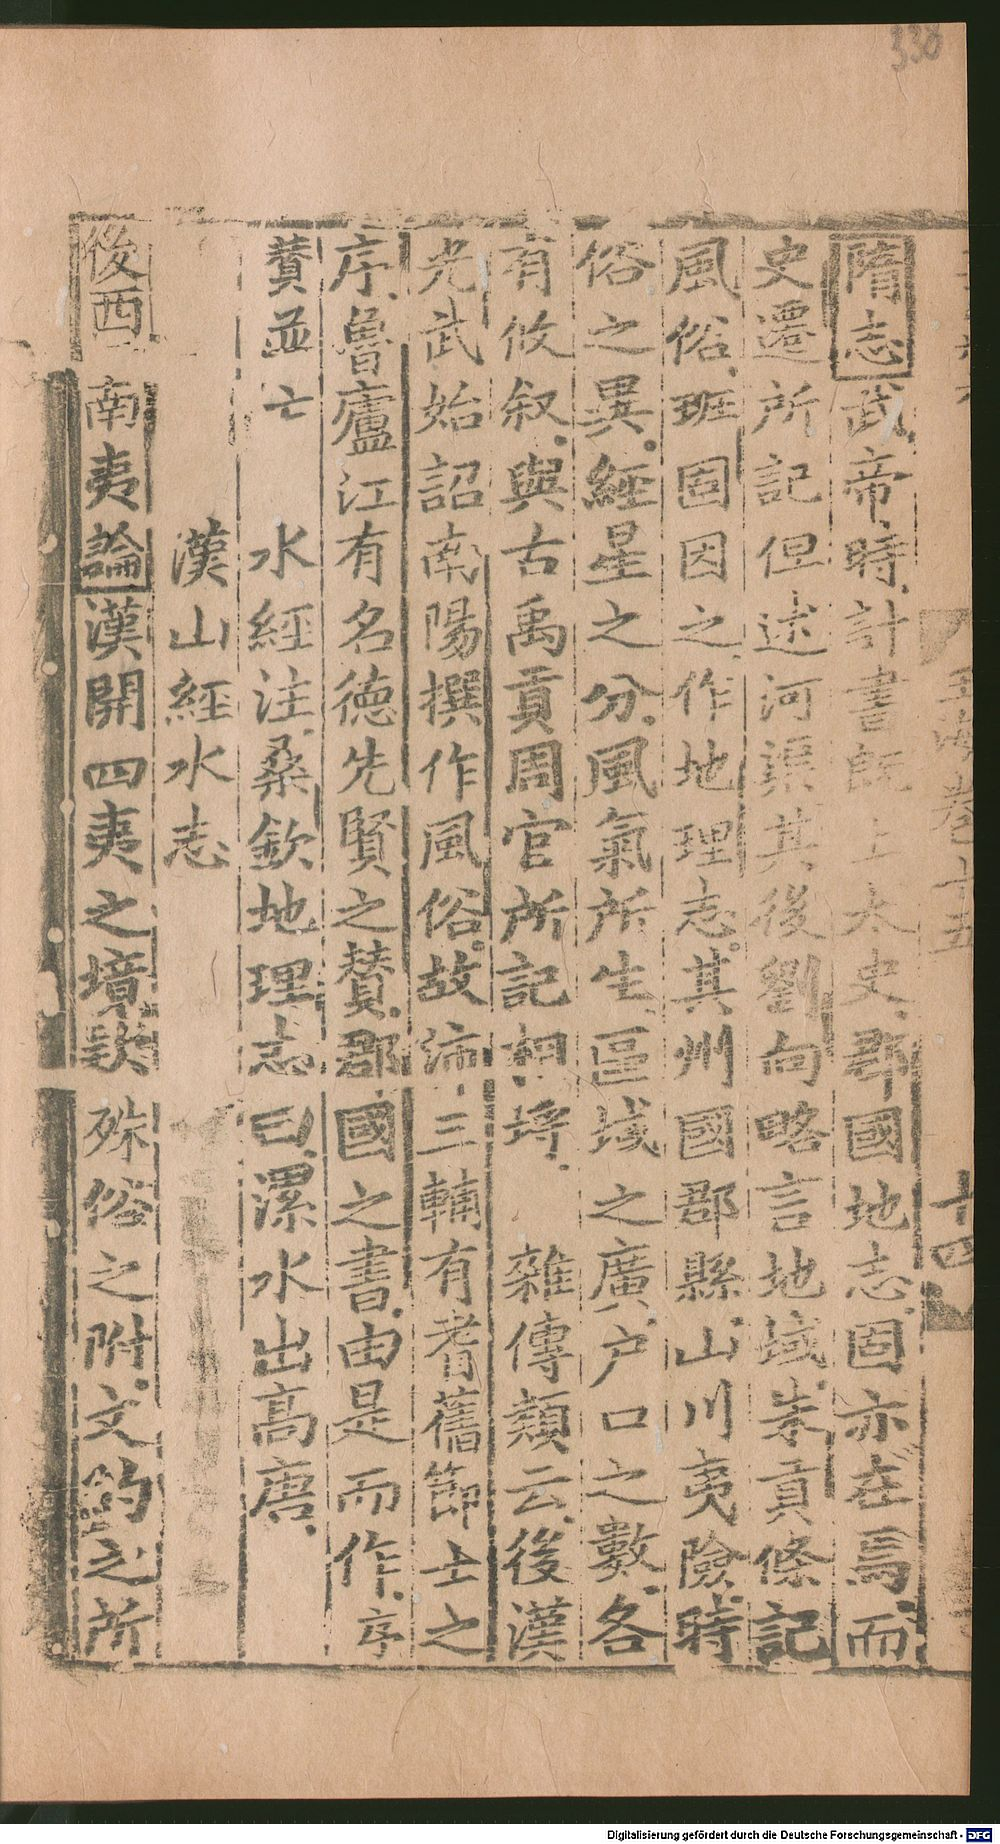 338
玉海卷十五
十四
隋志武帝時計書既上太史郡國地志固亦在焉而
史遷所記但述河渠其後劉向略言地域朱貢條記
風俗班固因之作地理志其州國郡縣山川夷險時
俗之異經星之分風氣所生區域之廣户口之數各
有攸叙與古禹貢周官所記相埒 雜傳類云後漢
光武始詔南陽撰作風俗故沛三輔有耆舊節士之
序魯廬江有名德先賢之賛郡國之書由是而作序
賛並亡 水經注桑欽地理志曰漯水出高唐
漢山經水志
後西南夷論漢開四夷之境欵殊俗之附文約之所
Digitalisierung gefördert durch die Deutsche Forschungsgemeinschaft - DFG